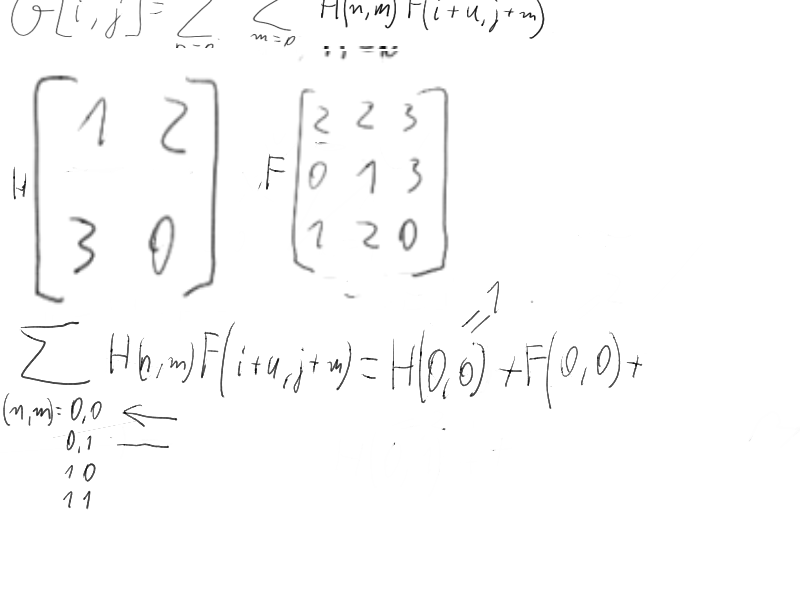 G[i,j]= Σ Σ H(n,m) F(i+u,j+m)
n=0 m=0
H [ 1 2
3 0 ]
F [ 2 2 3
0 1 3
1 2 0 ]
1
Σ H(n,m)F(i+u,j+m)=H(0,0)+F(0,0)+
(n,m)=0,0
0,1
1 0
1 1